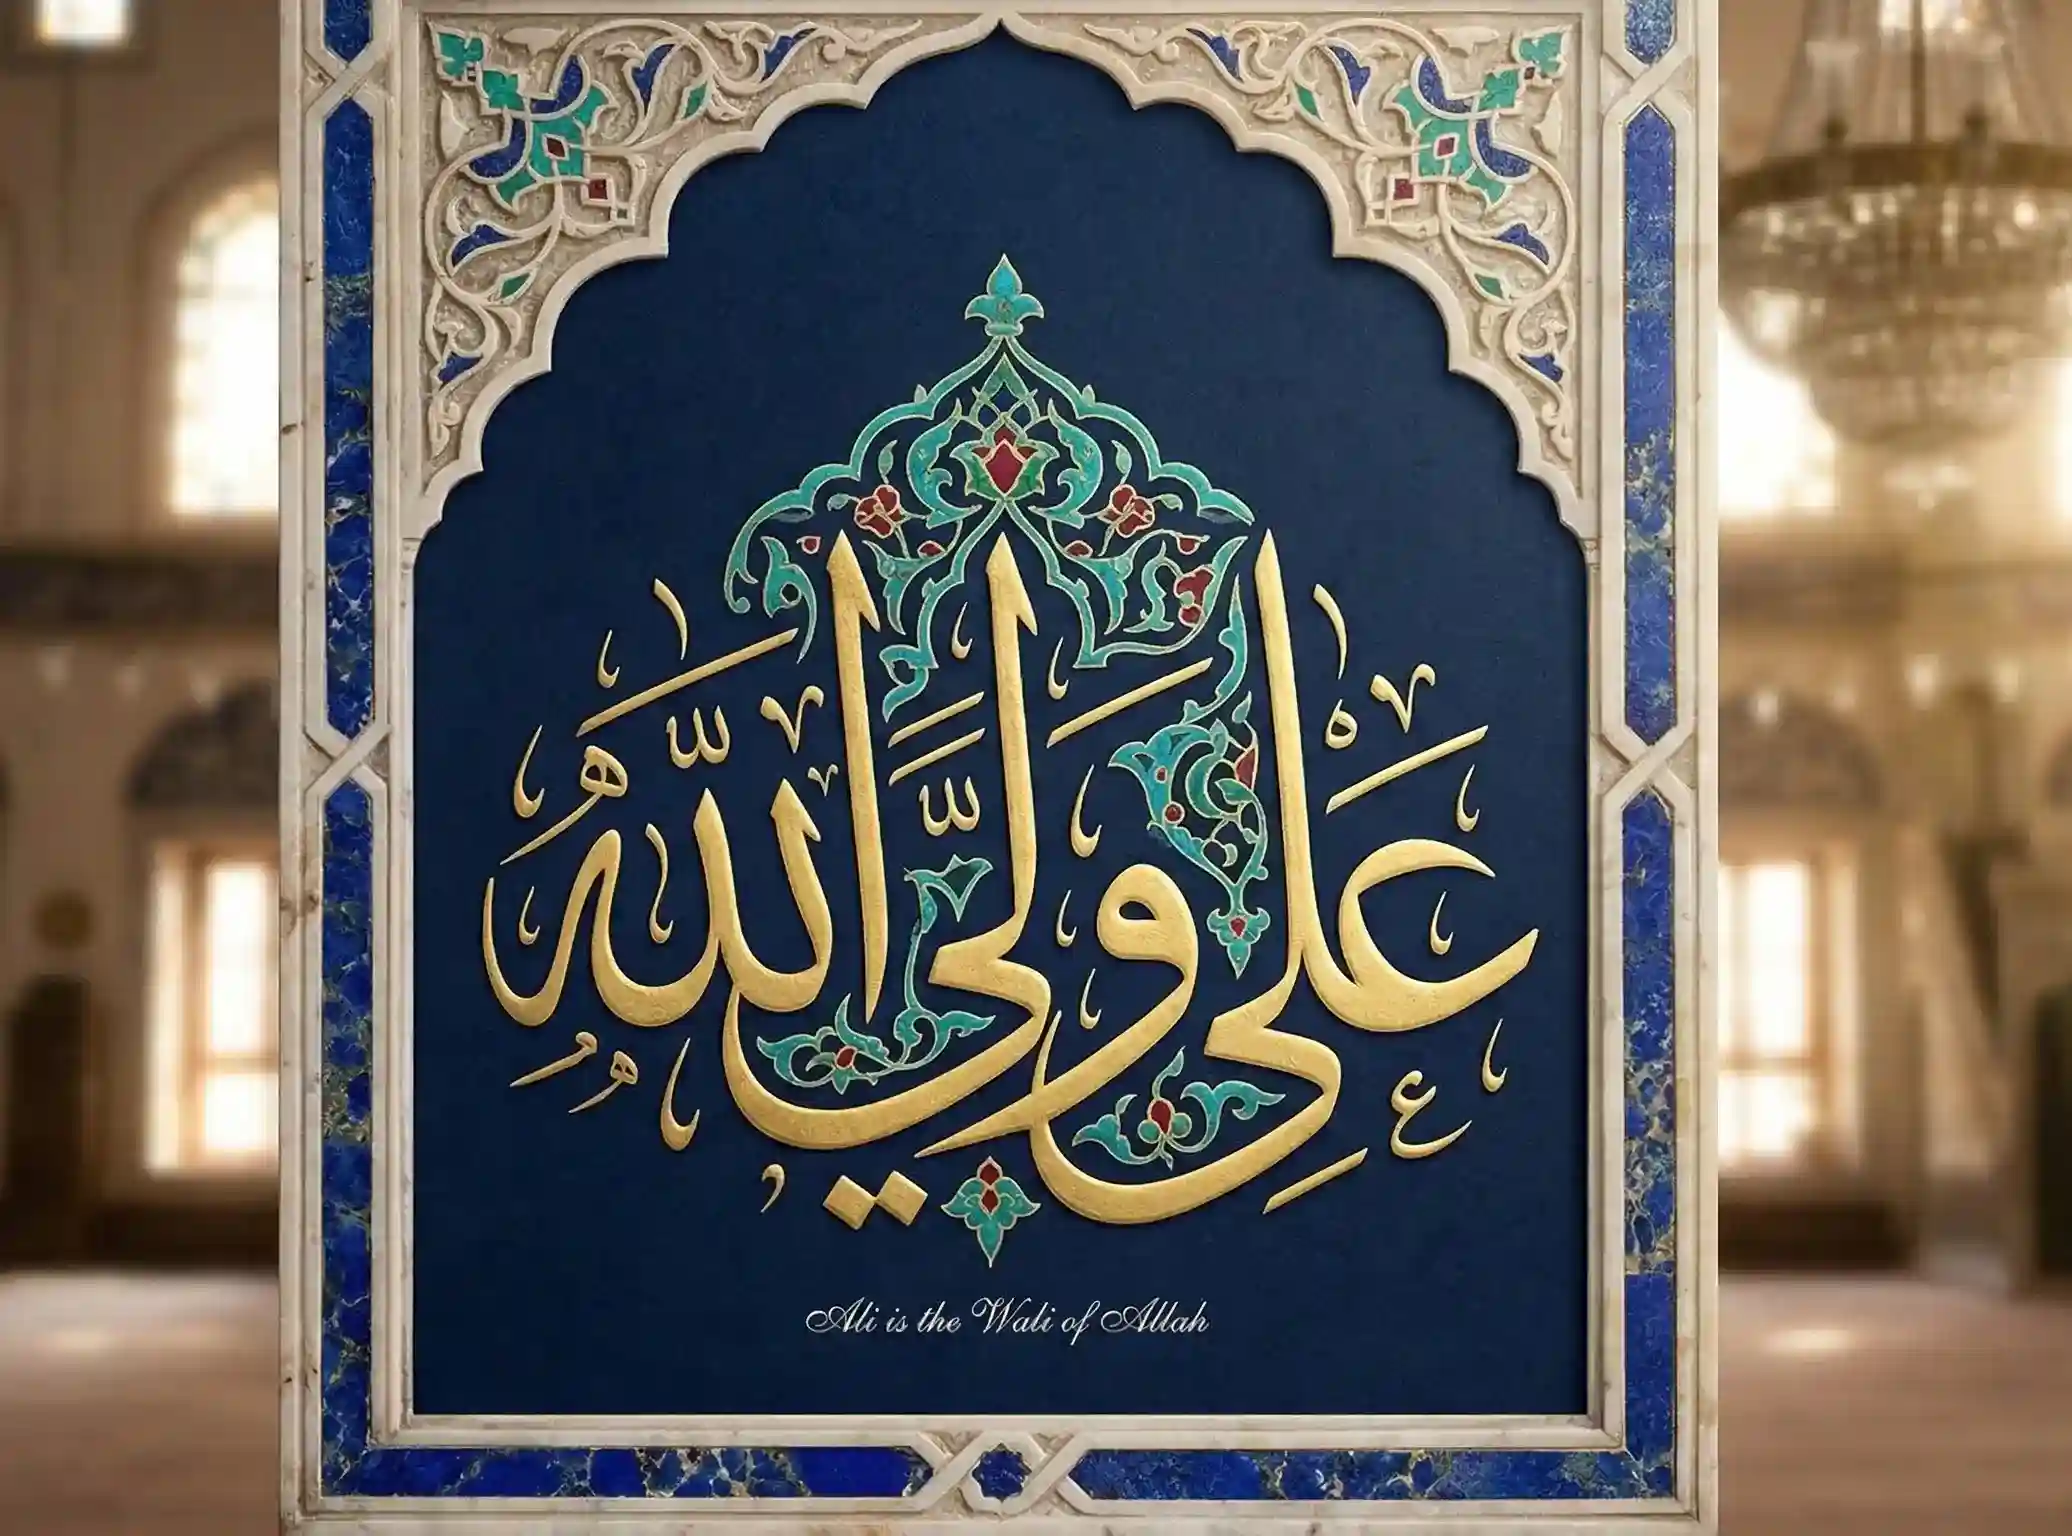 علي ولي الله
Ali is the Wali of Allah